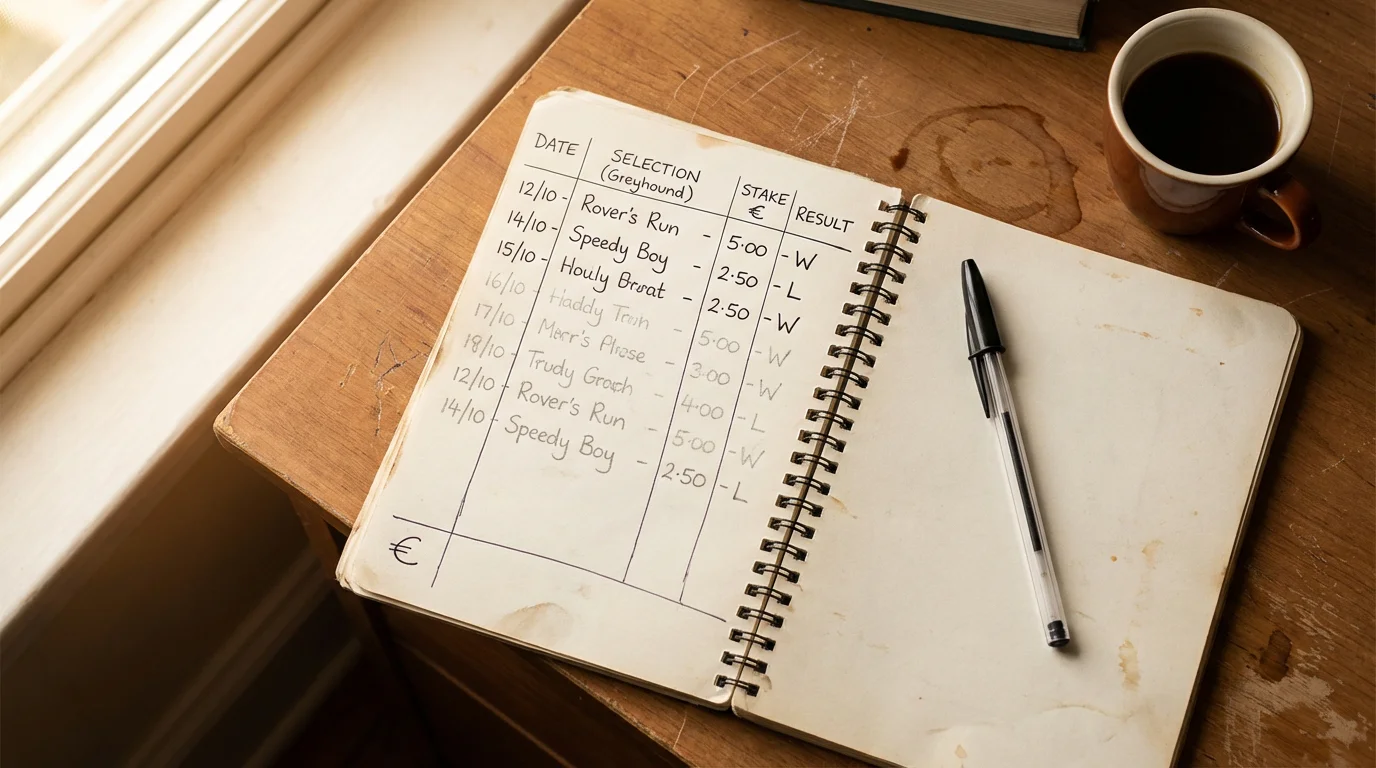 DATE SELECTION (Greyhound) STAKE € RESULT
12/10 - Rover's Run - 5·00 - W
14/10 - Speedy Boy - 2·50 - L
15/10 - - 2·50 - W
16/10 - Haddy - 5·00 - W
17/10 - - 3·00 - W
18/10 - Trudy - 4·00 - L
12/10 - Rover's Run - 5·00 - W
14/10 - Speedy Boy - 2·50 - L
€